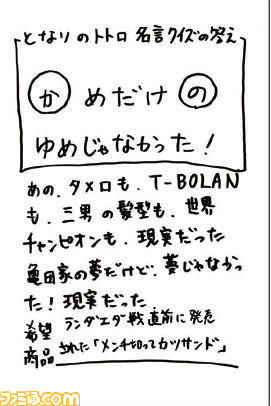 となりのトトロ 名言クイズの答え
かめだけの
ゆめじゃなかった!
あの、タメロも、T-BOLAN
も、三男の髪型も、世界
チャンピオンも、現実だった
亀田家の夢だけど、夢じゃなかっ
た!現実だった
希望 ランダエダ戦直前に発売
商品 された「メンチ切ってカツサンド」
ファミ通.com